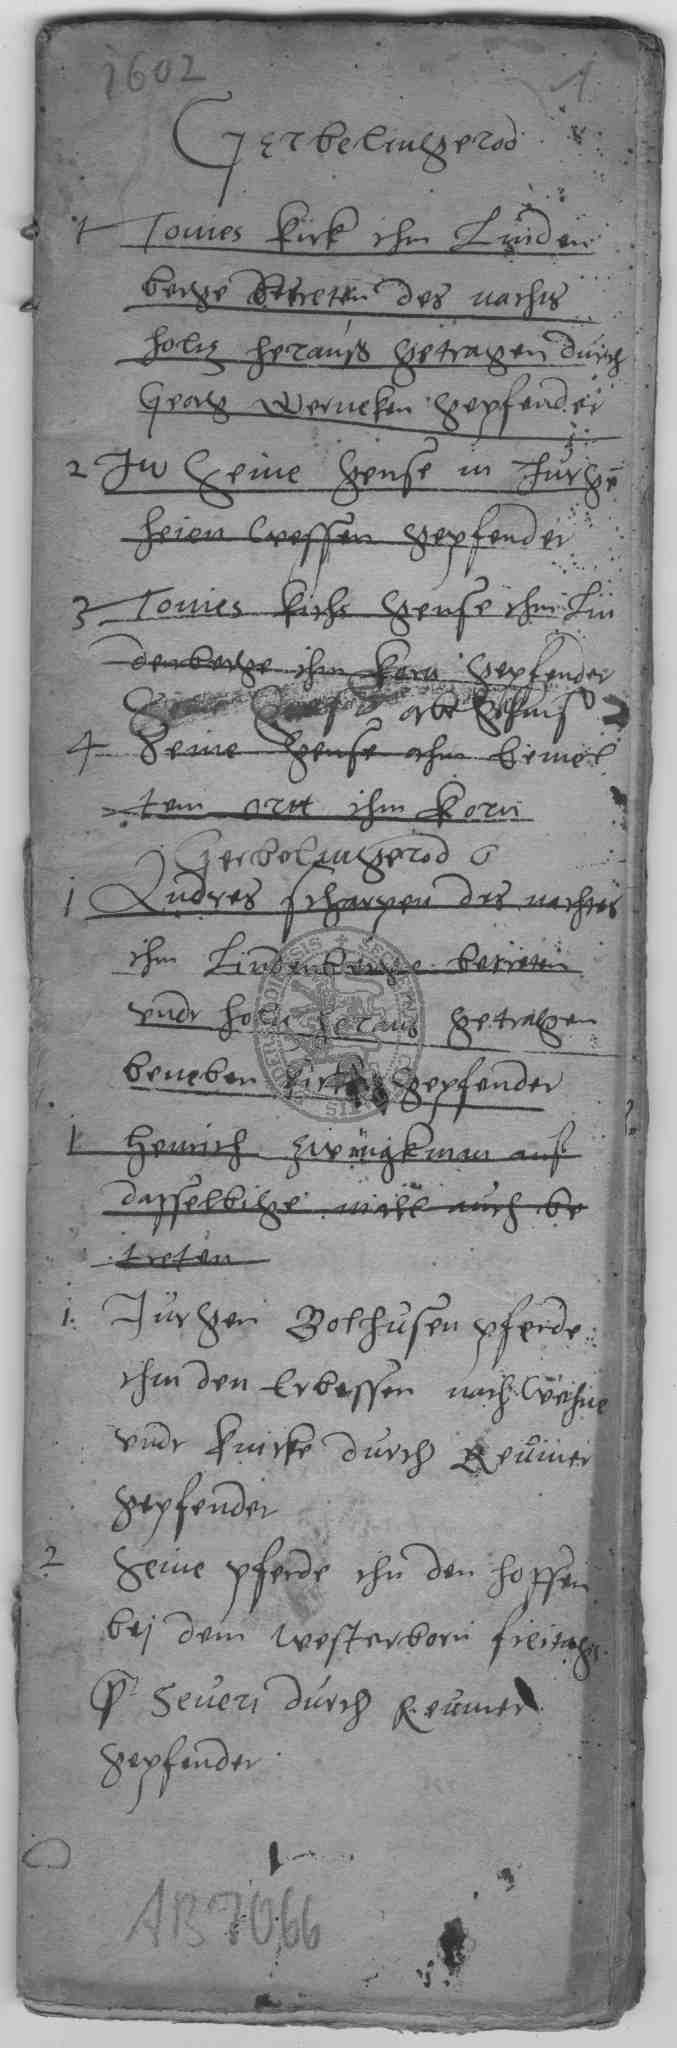 1602 1
Gerbelingerod
1 Tonies Kirk ihm Linden
berge betreten des nachts
holtz herauß getragen durch
Georg Werneken gepfendet
2 Item seine gense in Jurge
heien gepfendet
3 Tonies Kirks gense ihm Lin
denberge ihm Korn gepfendet
4 Seine gense ahm bemel
tem ortt ihm Korn
Gerbelingerod 6
1 Andres scharpen des nachtes
ihm Lindenberge betreten
vndt holtz heraus getragen
beneben Kirken gepfendet
1 Henrich Zwingkman auß
dasselbige mall auch be
treten
1. Jurgen Bolhusen pferde
ihn den Erbessen nach
vndt Knicke durch Reumer
gepfendet
2 Seine pferde ihn den hopffen
bej dem Westerborn freitags
Severi durch Reumer
gepfendet
AB 7066